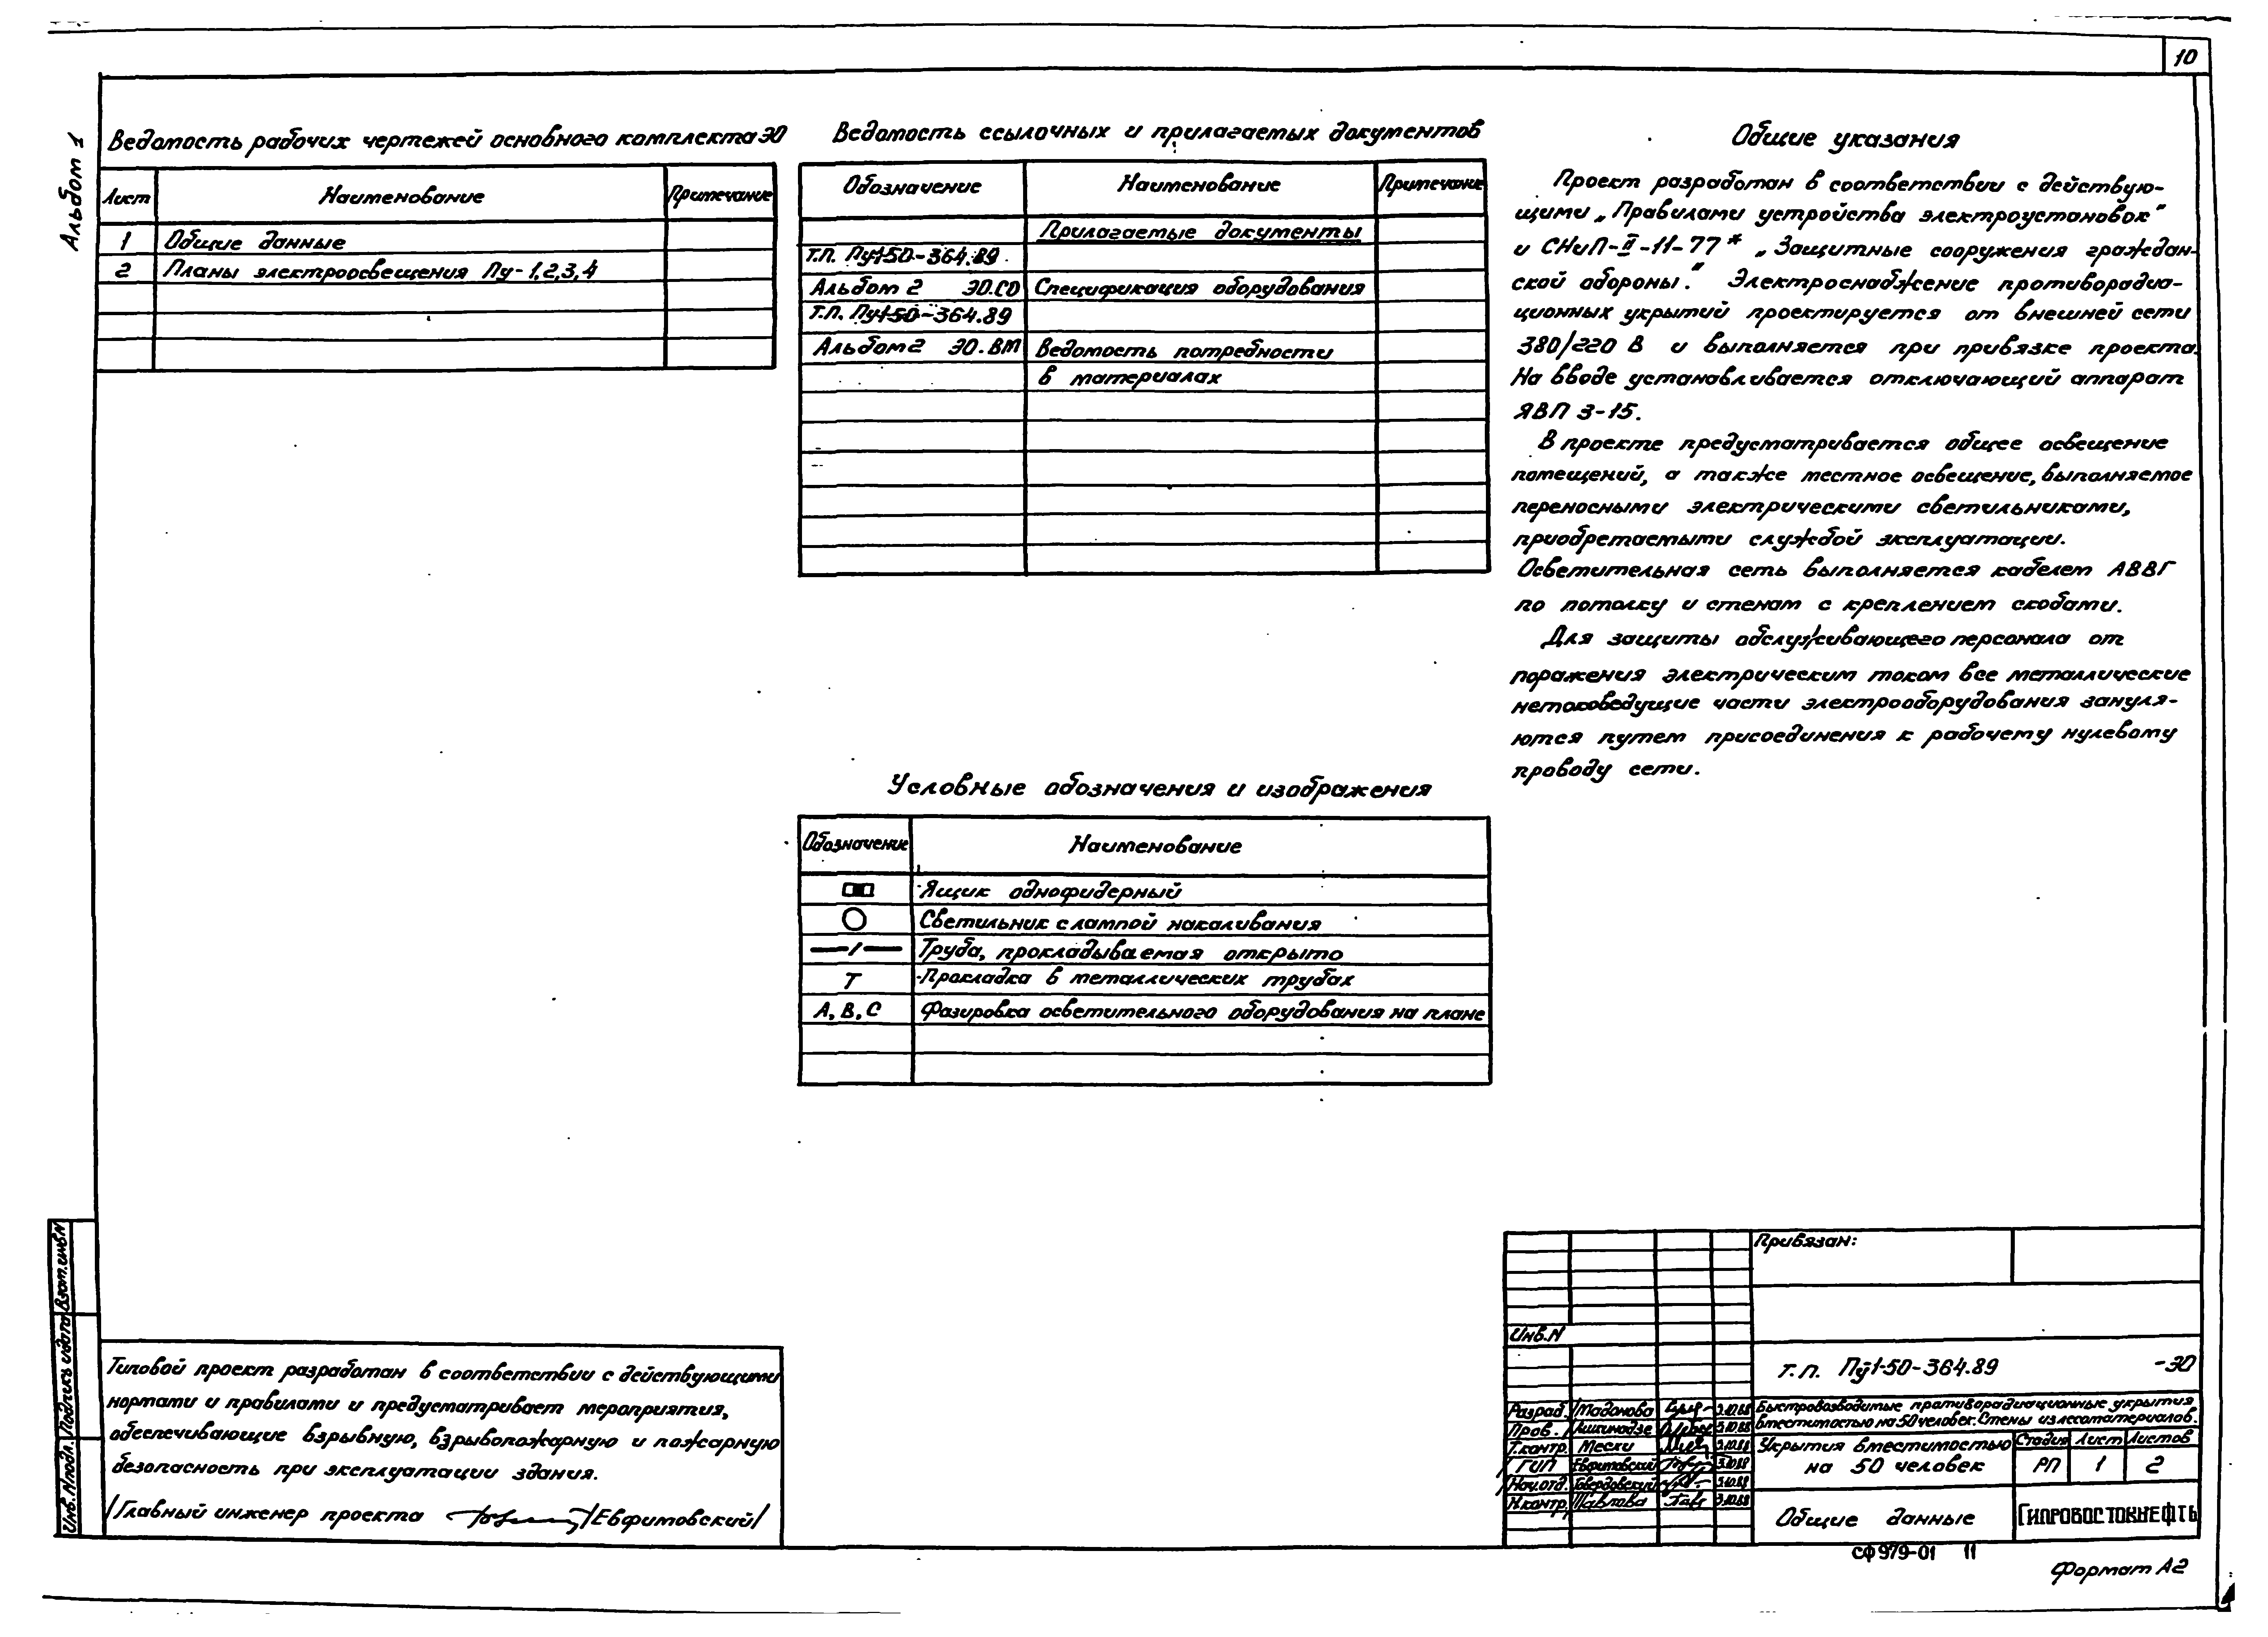 10
Альбом 1
Ведомость рабочих чертежей основного комплекта ЭО
Лист Наименование Примечание
1 Общие данные
2 Планы электроосвещения Пу-1,2,3,4
Ведомость ссылочных и прилагаемых документов
Обозначение Наименование Примечание
Прилагаемые документы
Т.П. Пу1-50-364.89
Альбом 2 ЭО.СО Спецификация оборудования
Т.П. Пу1-50-364.89
Альбом 2 ЭО.ВМ Ведомость потребности
в материалах
Условные обозначения и изображения
Обозначение Наименование
Ящик однофидерный
Светильник с лампой накаливания
Труба, прокладываемая открыто
Т Прокладка в металлических трубах
А, В, С Фазировка осветительного оборудования на плане
Общие указания
Проект разработан в соответствии с действую-
щими „Правилами устройства электроустановок"
и СНиП-II-11-77* „Защитные сооружения граждан-
ской обороны." Электроснабжение противорадиа-
ционных укрытий проектируется от внешней сети
380/220 В и выполняется при привязке проекта.
На вводе устанавливается отключающий аппарат
ЯВП 3-15.
В проекте предусматривается общее освещение
помещений, а также местное освещение, выполняемое
переносными электрическими светильниками,
приобретаемыми службой эксплуатации.
Осветительная сеть выполняется кабелем АВВГ
по потолку и стенам с креплением скобами.
Для защиты обслуживающего персонала от
поражения электрическим током все металлические
нетоковедущие части электрооборудования зануля-
ются путем присоединения к рабочему нулевому
проводу сети.
Взам.инв.N
Подпись и дата
Инв. N подл.
Типовой проект разработан в соответствии с действующими
нормами и правилами и предусматривает мероприятия,
обеспечивающие взрывную, взрывопожарную и пожарную
безопасность при эксплуатации здания.
/Главный инженер проекта /Евфимовский/
Привязан:
Инв.N
Т.П. Пу1-50-364.89 -ЭО
Разраб. Мадонова 3.10.88
Пров. 3.10.88
Т.контр. Мески 3.10.88
ГИП Евфимовский 3.10.88
Нач.отд. Говердовский 3.10.88
Н.контр. Павлова 3.10.88
Быстровозводимые противорадиационные укрытия
вместимостью на 50 человек. Стены из лесоматериалов.
Укрытия вместимостью
на 50 человек
Стадия Лист Листов
РП 1 2
Общие данные
ГИПРОВОСТОКНЕФТЬ
СФ 979-01 11
Формат А2